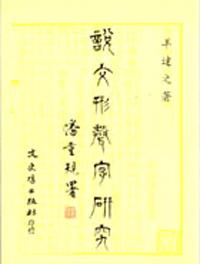 羊達之著
說文形聲字研究
潘重規署
文史哲出版社印行